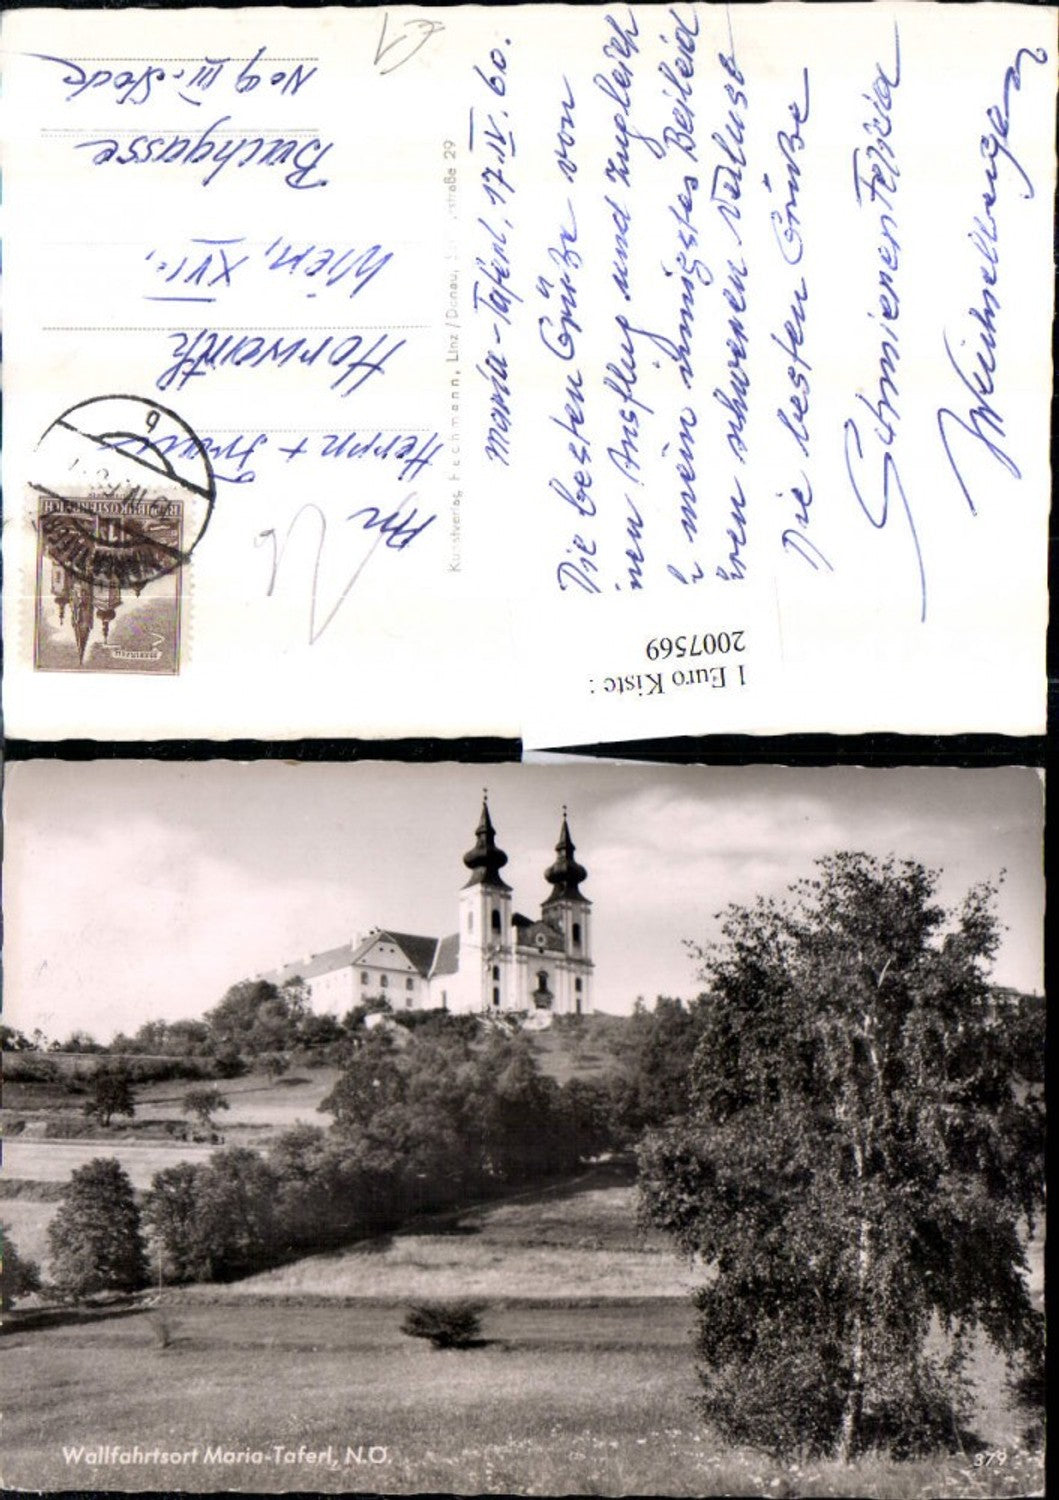 Maria-Taferl, 17.IV.60.
Die besten Grüße von
Ausflug und zugleich
mein innigstes Beileid
schweren Verluste
Die besten Grüße
Weichselberger
An
Herrn + Frau
Horwath
Wien, XVI.,
Buchgasse
No 9 III. Stock
Kunstverlag Hechmann, Linz/Donau,
straße 29
REPUBLIK ÖSTERREICH
1 Euro Kiste :
2007569
Wallfahrtsort Maria-Taferl, N.Ö.
379